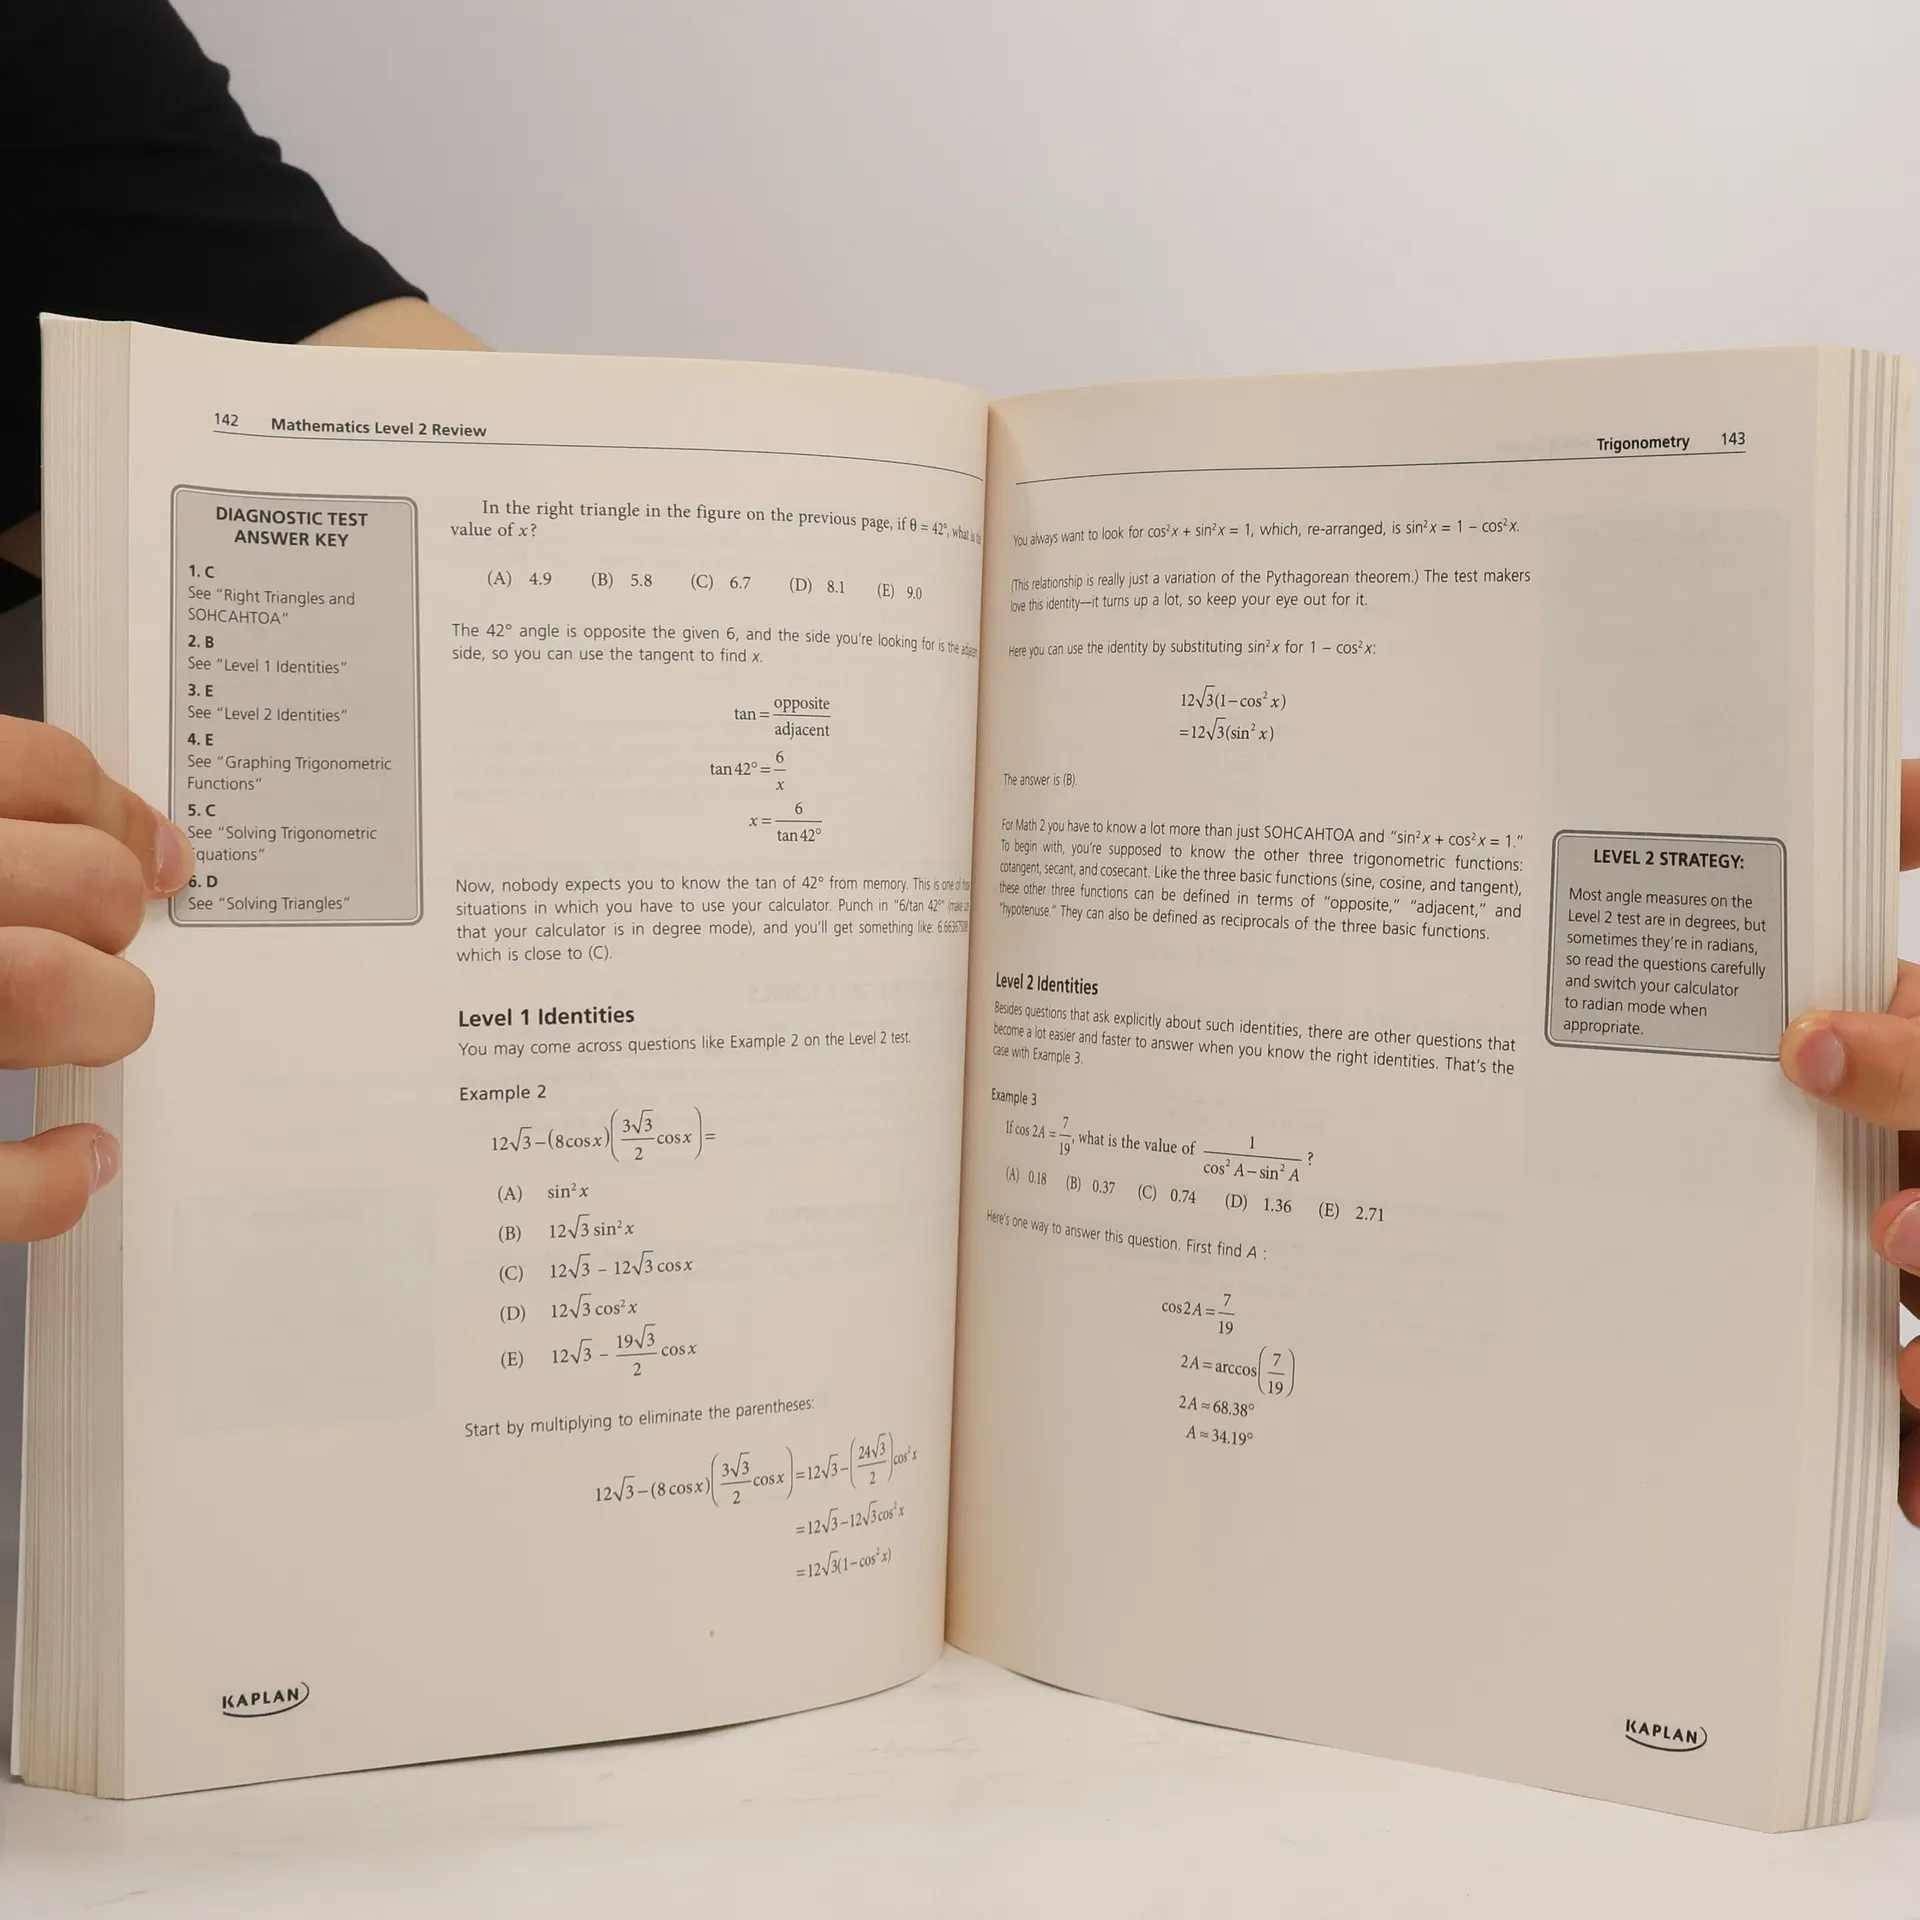 142 Mathematics Level 2 Review
DIAGNOSTIC TEST
ANSWER KEY
1. C
See "Right Triangles and
SOHCAHTOA"
2. B
See "Level 1 Identities"
3. E
See "Level 2 Identities"
4. E
See "Graphing Trigonometric
Functions"
5. C
See "Solving Trigonometric
quations"
6. D
See "Solving Triangles"
In the right triangle in the figure on the previous page, if θ = 42°, what is the
value of x?
(A) 4.9 (B) 5.8 (C) 6.7 (D) 8.1 (E) 9.0
The 42° angle is opposite the given 6, and the side you're looking for is the
side, so you can use the tangent to find x.
tan = opposite/adjacent
tan 42° = 6/x
x = 6/tan 42°
Now, nobody expects you to know the tan of 42° from memory. This is one of
situations in which you have to use your calculator. Punch in "6/tan 42°" (make
that your calculator is in degree mode), and you'll get something like:
which is close to (C).
Level 1 Identities
You may come across questions like Example 2 on the Level 2 test.
Example 2
12√3 – (8 cos x)(3√3/2 cos x) =
(A) sin²x
(B) 12√3 sin²x
(C) 12√3 – 12√3 cos x
(D) 12√3 cos²x
(E) 12√3 – 19√3/2 cos x
Start by multiplying to eliminate the parentheses:
12√3 – (8 cos x)(3√3/2 cos x) = 12√3 – (24√3/2) cos²x
= 12√3 – 12√3 cos²x
= 12√3(1 – cos²x)
KAPLAN
Trigonometry 143
You always want to look for cos²x + sin²x = 1, which, re-arranged, is sin²x = 1 – cos²x.
(This relationship is really just a variation of the Pythagorean theorem.) The test makers
love this identity—it turns up a lot, so keep your eye out for it.
Here you can use the identity by substituting sin²x for 1 – cos²x:
12√3(1 – cos² x)
= 12√3(sin² x)
The answer is (B).
For Math 2 you have to know a lot more than just SOHCAHTOA and "sin²x + cos²x = 1."
To begin with, you're supposed to know the other three trigonometric functions:
cotangent, secant, and cosecant. Like the three basic functions (sine, cosine, and tangent),
these other three functions can be defined in terms of "opposite," "adjacent," and
"hypotenuse." They can also be defined as reciprocals of the three basic functions.
Level 2 Identities
Besides questions that ask explicitly about such identities, there are other questions that
become a lot easier and faster to answer when you know the right identities. That's the
case with Example 3.
Example 3
If cos 2A = 7/19, what is the value of 1/(cos² A – sin² A) ?
(A) 0.18 (B) 0.37 (C) 0.74 (D) 1.36 (E) 2.71
Here's one way to answer this question. First find A :
cos 2A = 7/19
2A = arccos(7/19)
2A ≈ 68.38°
A ≈ 34.19°
LEVEL 2 STRATEGY:
Most angle measures on the
Level 2 test are in degrees, but
sometimes they're in radians,
so read the questions carefully
and switch your calculator
to radian mode when
appropriate.
KAPLAN